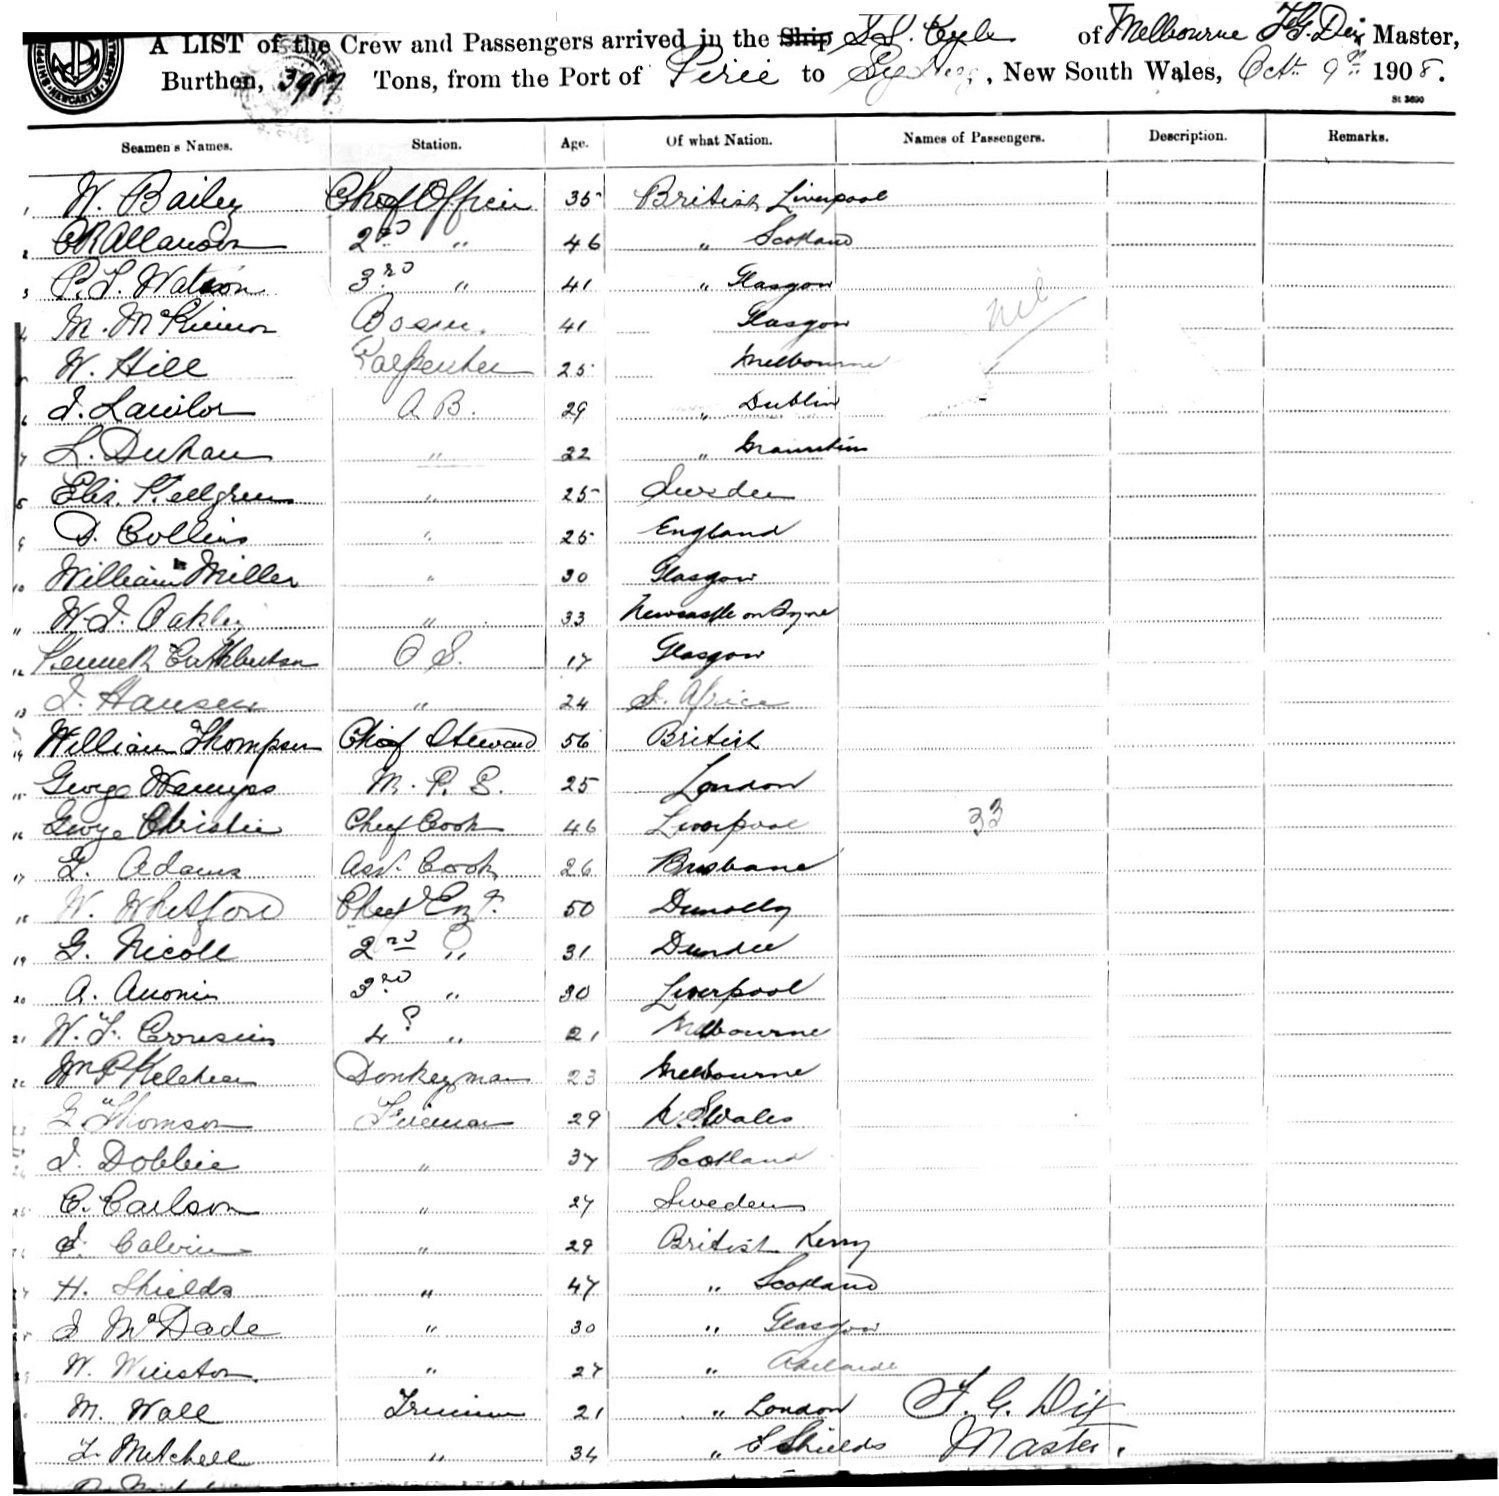 A LIST of the Crew and Passengers arrived in the Ship S.S. of Melbourne F.G. Dix Master,
Burthen, 3987 Tons, from the Port of Pirie to Sydney, New South Wales, Oct 9th 1908.
St 3690
Seamen s Names. Station. Age. Of what Nation. Names of Passengers. Description. Remarks.
1 W. Bailey Chief Officer 35 British Liverpool
2 C R Allanson 2nd " 46 " Scotland
3 P. L. Watson 3rd " 41 " Glasgow
4 M. McKinnon Bosun. 41 Glasgow nil
5 W. Hill Carpenter 25 Melbourne
6 J. Lawlor A B. 29 " Dublin
7 L. Duhau " 22 "
8 Kellgren " 25 Sweden
9 D. Collins " 25 England
10 William Miller " 30 Glasgow
11 W. J. Oakley " 33 Newcastle on Tyne
12 Kenneth Cuthbertson O S. 17 Glasgow
13 J. Hansen " 24 S. Africa
14 William Thompson Chief Steward 56 British
15 George Wemyss M. R. S. 25 London
16 George Christie Chief Cook 46 Liverpool 33
17 G. Adams Asst. Cook 26 Brisbane
18 W. Whitford Chief Engr. 50 Dunolly
19 G. Nicoll 2nd " 31 Dundee
20 A. 3rd " 30 Liverpool
21 W. F. 4 " 21 Melbourne
22 Wm P Kelcher Donkeyman 23 Melbourne
23 G Thomson Fireman 29 N. S Wales
24 J. Dobbie " 37 Scotland
25 C. Carlson " 27 Sweden
26 J. Calvin " 29 British Kerry
27 H. Shields " 47 " Scotland
28 J McDade " 30 " Glasgow
29 W. Winston " 27 " Adelaide
M. Wall Trimmer 21 " London F. G. Dix
L. Mitchell " 34 " S Shields Master.